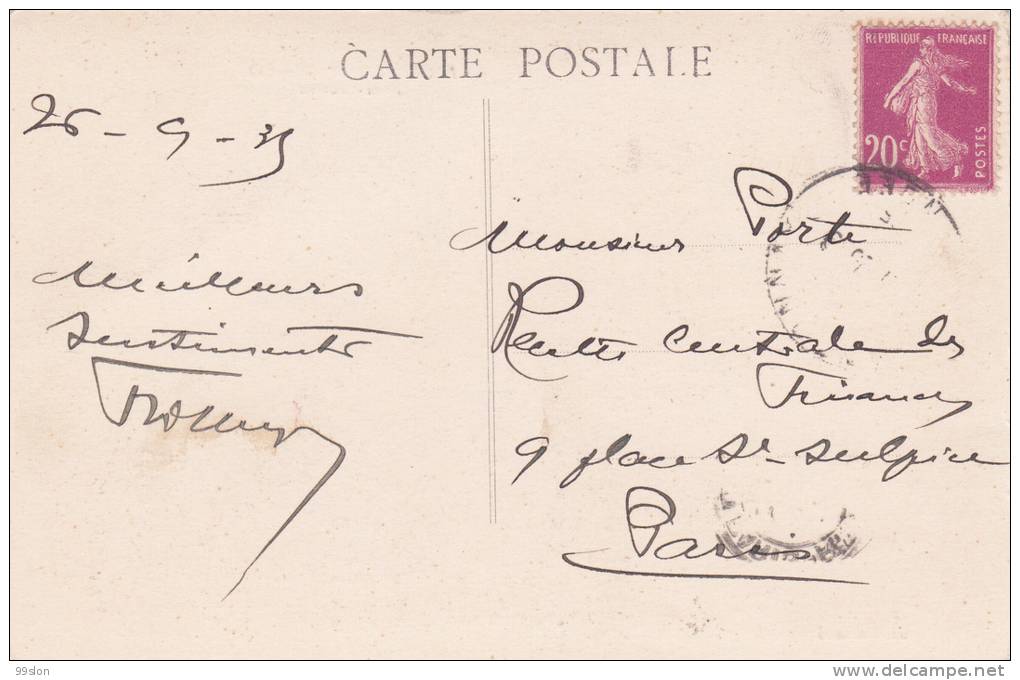 CARTE POSTALE
REPUBLIQUE FRANÇAISE
20c
POSTES
26 - 9 - 35
Meilleurs
sentiments
Monsieur Porte
Recette Centrale des
Finances
9 place St- Sulpice
Paris
99slon
www.delcampe.net